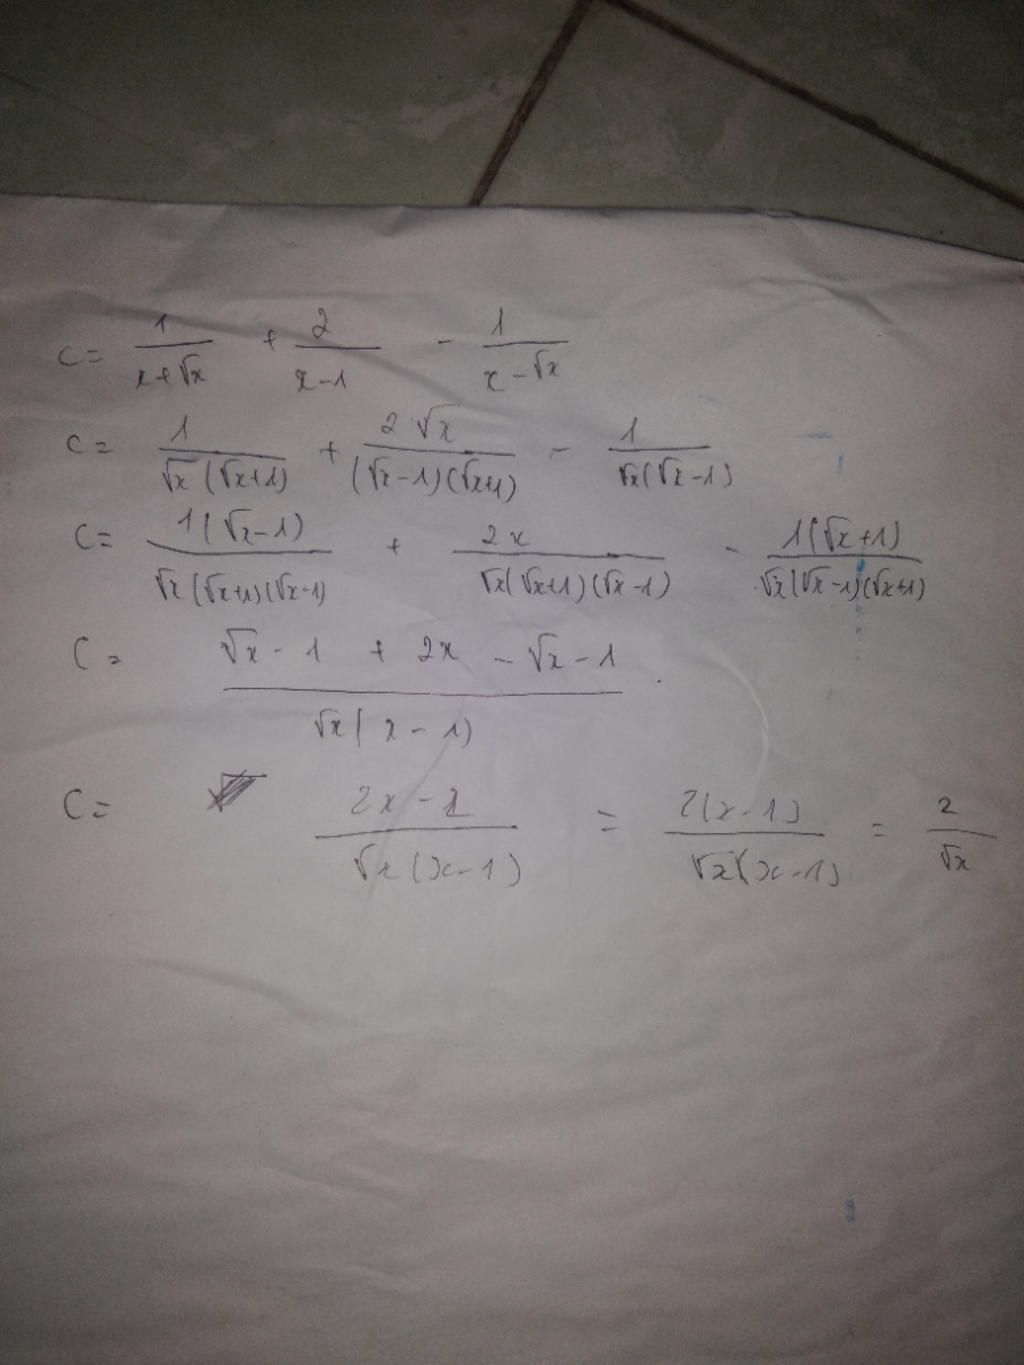 C = 1/(x+√x) + 2/(x-1) - 1/(x-√x)
C = 1/(√x(√x+1)) + 2√x/((√x-1)(√x+1)) - 1/(√x(√x-1))
C = 1(√x-1)/(√x(√x+1)(√x-1)) + 2x/(√x(√x+1)(√x-1)) - 1(√x+1)/(√x(√x-1)(√x+1))
C = (√x-1 + 2x - √x-1)/(√x(x-1))
C = (2x-2)/(√x(x-1)) = 2(x-1)/(√x(x-1)) = 2/√x